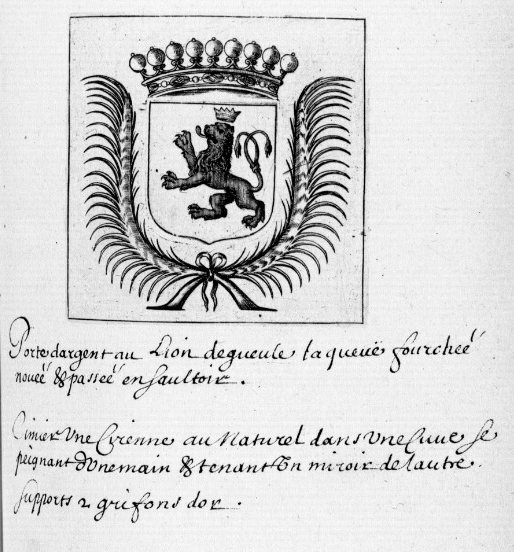 Porte dargent au Lion degueule la queuë fourcheé
noueé & passeé en saultoir.
Cimier Vne Sirenne au Naturel dans Vne Cuue se
peignant d'Vnemain & tenant Vn miroir de lautre.
supports 2 grifons dor.